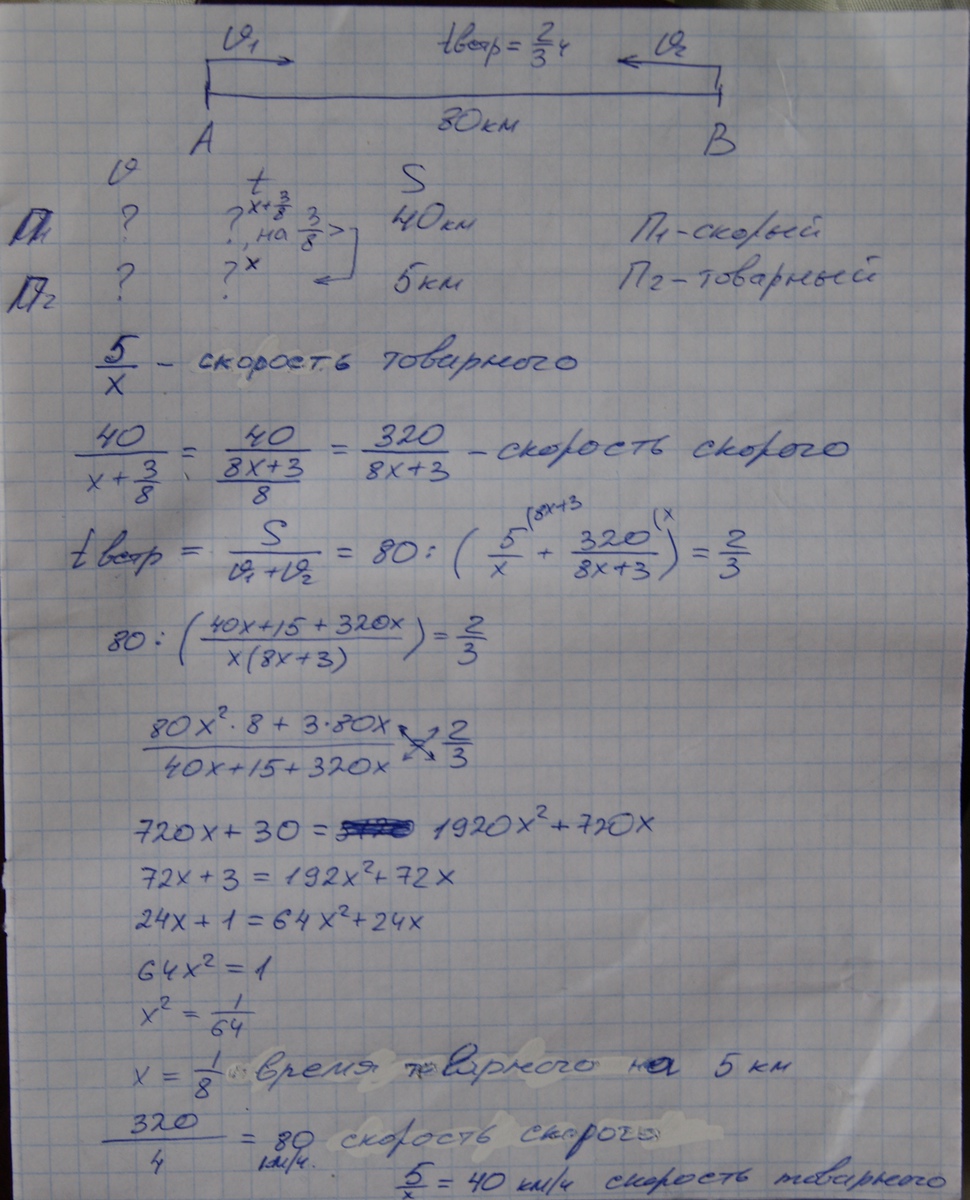 𝑣₁ tвстр = 2/3 ч 𝑣₂
80км
A B
𝑣 t S
П₁ ? ? x+3/8, на 3/8 > 40км П₁-скорый
П₂ ? ? x 5км П₂-товарный
5/x - скорость товарного
40/(x+3/8) = 40/((8x+3)/8) = 320/(8x+3) - скорость скорого
tвстр = S/(𝑣₁+𝑣₂) = 80 : (5/x (8x+3 + 320/(8x+3) (x) = 2/3
80 : ((40x+15+320x)/(x(8x+3))) = 2/3
(80x²·8 + 3·80x)/(40x+15+320x) = 2/3
720x + 30 = 1920x² + 720x
72x + 3 = 192x² + 72x
24x + 1 = 64x² + 24x
64x² = 1
x² = 1/64
x = 1/8 время товарного на 5 км
320/4 = 80 км/ч. скорость скорого
5/x = 40 км/ч скорость товарного